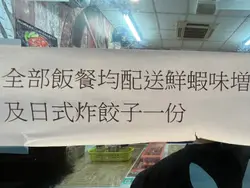 全部飯餐均配送鮮蝦味增
及日式炸餃子一份